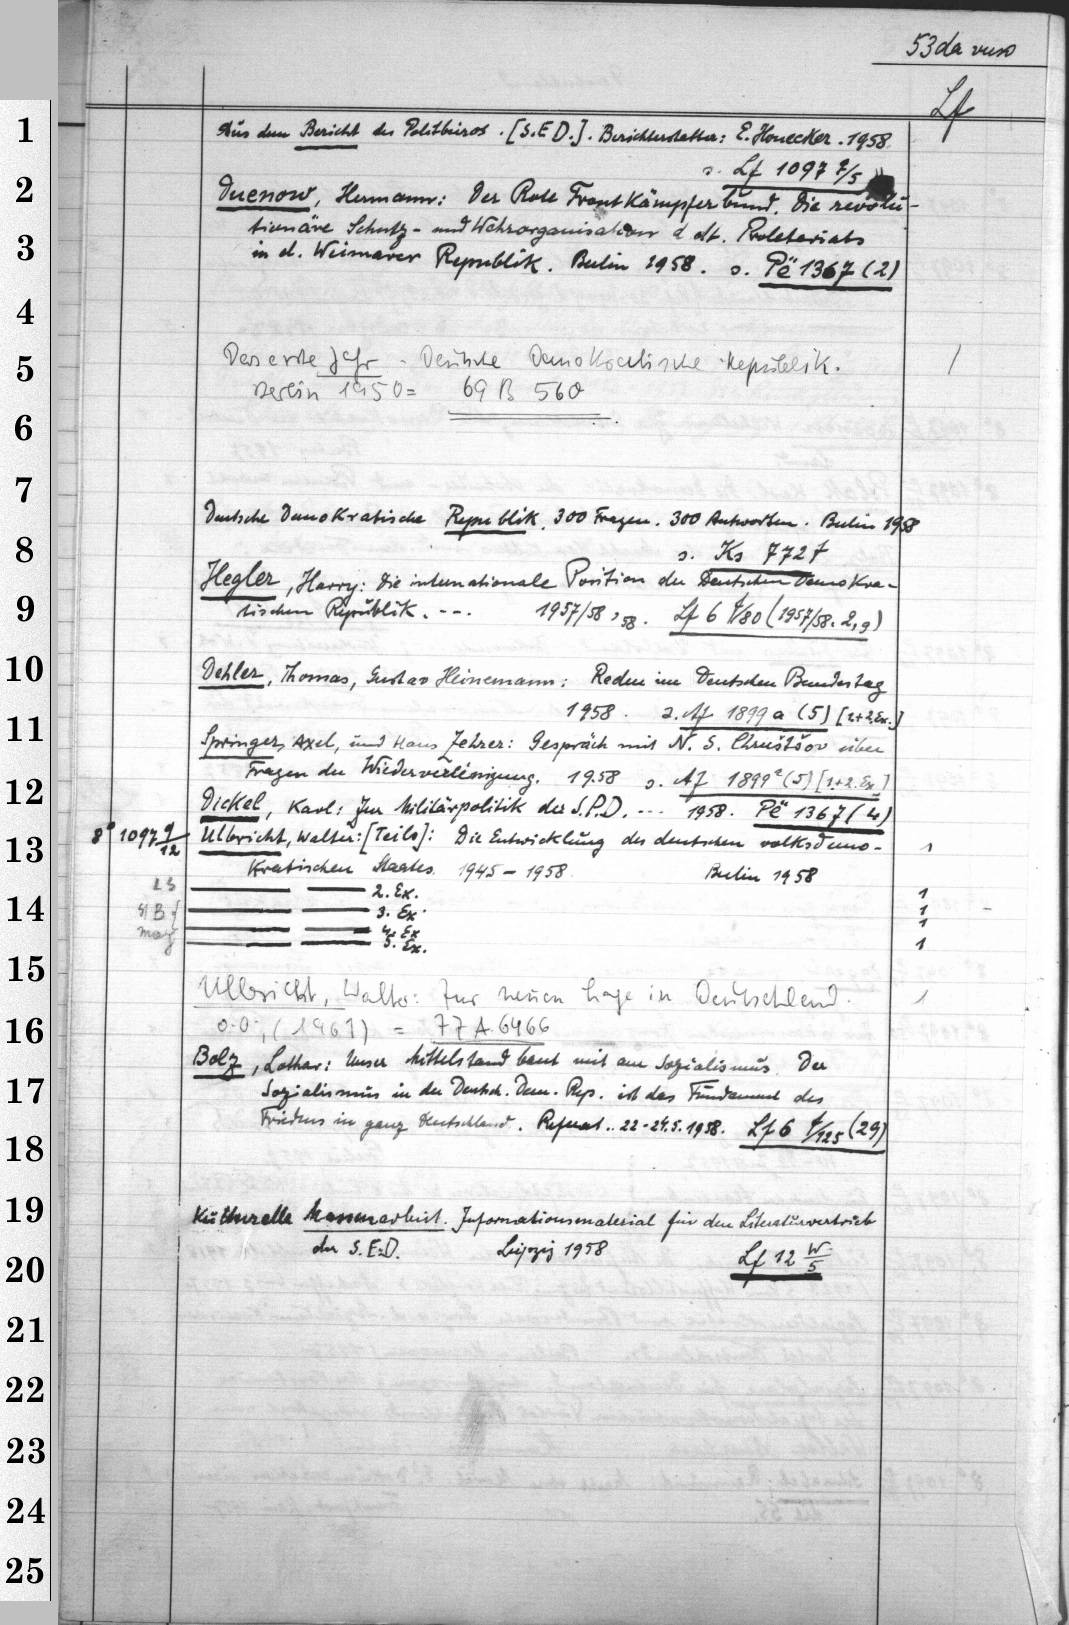 53da
Lf
1 Aus dem Bericht des Politbüros. [S.E D.]. Berichterstatter: E. Honecker. 1958
s. Lf 1097 7/5
2 Duenow, Hermann: Der Rote Frontkämpferbund. Die revolu-
tionäre Schutz- und Wehrorganisation d dt. Proletariats
3 in d. Weimarer Republik. Berlin 1958. s. Pë 1367 (2)
4
5 Das erste Jahr - Deutsche Demokratische Republik. 1
Berlin 1950 = 69 B 560
6
7
Deutsche Demokratische Republik. 300 Fragen. 300 Antworten. Berlin 1958
8 s. Ks 7727
Hegler, Harry: Die internationale Position der Deutschen Demokra-
9 tischen Republik. --- 1957/58, 58. Lf 6 t/80 (1957/58. 2,9)
10 Dehler, Thomas, Gustav Heinemann: Reden im Deutschen Bundestag
11 1958. s. Af 1899 a (5) [1+2. Ex.]
Springer, Axel, und Hans Zehrer: Gespräch mit N. S. Chruščov über
12 Fragen der Wiedervereinigung. 1958 s. Af 1899 a (5) [1+2. Ex]
Dickel, Karl: Zur Militärpolitik der S.P.D. --- 1958. Pë 1367 (4)
13 8° 1097 9/12 Ulbricht, Walter: [Teils]: Die Entwicklung des deutschen volksdemo- 1
kratischen Staates. 1945 - 1958 Berlin 1958
LS 2. Ex. 1
14 3. Ex. 1
4. Ex 1
5. Ex. 1
15 Ulbricht, Walter: Zur neuen Lage in Deutschland. 1
16 o.O., (1961) = 77 A 6466
Bolz, Lothar: Unser Mittelstand baut mit am Sozialismus. Der
17 Sozialismus in der Deutsch. Dem. Rep. ist das Fundament des
Friedens in ganz Deutschland. Referat .. 22-24.5.1958. Lf 6 t/125 (29)
18
19 Kulturelle Massenarbeit. Informationsmaterial für den Literaturvertrieb
der S.E.D. Leipzig 1958 Lf 12 W/5
20
21
22
23
24
25